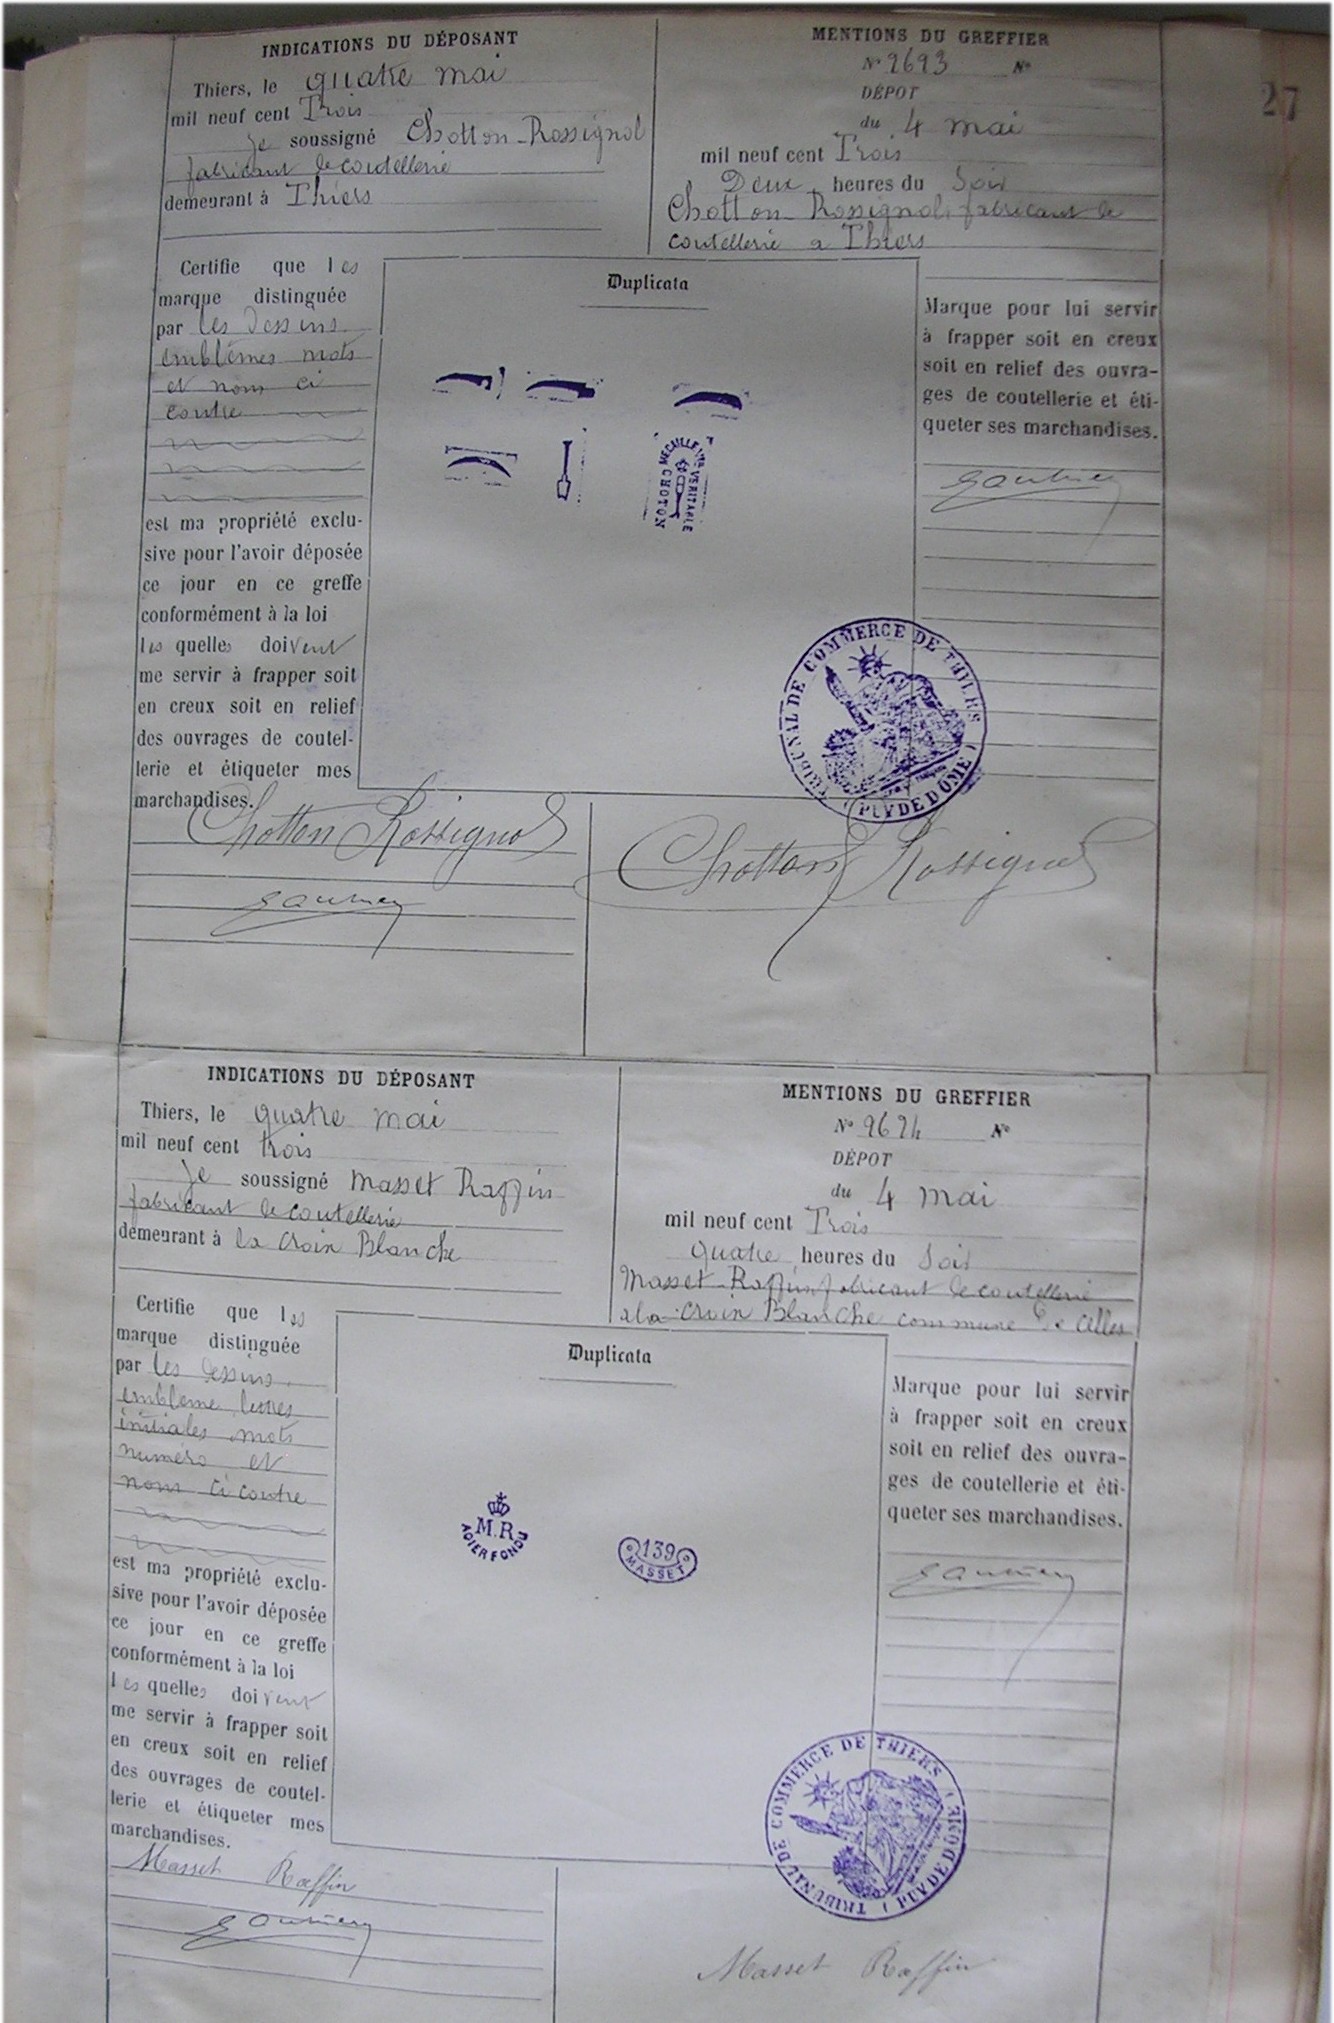 27
INDICATIONS DU DÉPOSANT
Thiers, le quatre mai
mil neuf cent Trois
je soussigné Chotton-Rossignol
fabricant de coutellerie
demeurant à Thiers
MENTIONS DU GREFFIER
N° 2693 N°
DÉPOT
du 4 mai
mil neuf cent Trois
Deux heures du Soir
Chotton-Rossignol, fabricant de
coutellerie a Thiers
Certifie que les
marque distinguée
par les dessins
emblèmes mots
et nom ci
contre
est ma propriété exclu-
sive pour l'avoir déposée
ce jour en ce greffe
conformément à la loi
les quelles doivent
me servir à frapper soit
en creux soit en relief
des ouvrages de coutel-
lerie et étiqueter mes
marchandises.
Duplicata
VERITABLE
CHOTON
TRIBUNAL DE COMMERCE DE THIERS
(PUY DE DOME)
Marque pour lui servir
à frapper soit en creux
soit en relief des ouvra-
ges de coutellerie et éti-
queter ses marchandises.
Chotton Rossignol
Chotton Rossignol
INDICATIONS DU DÉPOSANT
Thiers, le quatre mai
mil neuf cent trois
je soussigné Masset Raffin
fabricant de coutellerie
demeurant à la Croix Blanche
MENTIONS DU GREFFIER
N° 2694 N°
DÉPOT
du 4 mai
mil neuf cent Trois
quatre heures du Soir
Masset-Raffin fabricant de coutellerie
a la Croix Blanche commune de Celles
Certifie que les
marque distinguée
par les dessins,
emblème lettres
initiales mots
numéro et
nom ci contre
est ma propriété exclu-
sive pour l'avoir déposée
ce jour en ce greffe
conformément à la loi
les quelles doivent
me servir à frapper soit
en creux soit en relief
des ouvrages de coutel-
lerie et étiqueter mes
marchandises.
Duplicata
M.R
ACIER FONDU
139
MASSET
TRIBUNAL DE COMMERCE DE THIERS
(PUY DE DOME)
Marque pour lui servir
à frapper soit en creux
soit en relief des ouvra-
ges de coutellerie et éti-
queter ses marchandises.
Masset Raffin
Masset Raffin